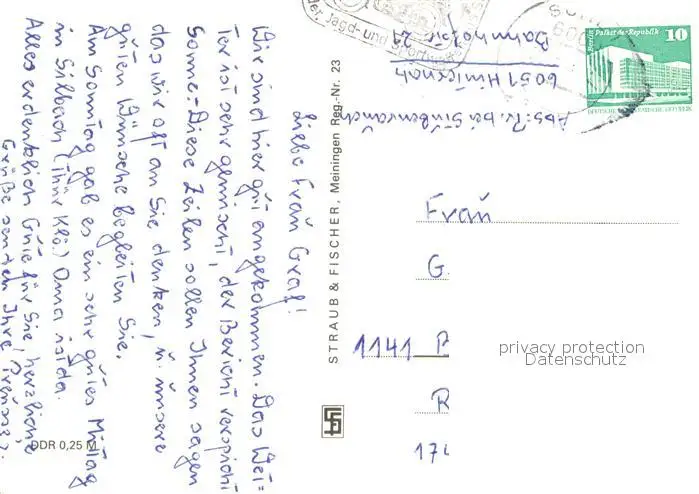 Liebe Frau Graf!
Wir sind hier gut angekommen. Das Wet=
ter ist sehr gemischt, der Bericht verspricht
Sonne. Diese Zeilen sollen Ihnen sagen
das wir oft an Sie denken, u. unsere
guten Wünsche begleiten Sie.
Am Sonntag gab es ein sehr gutes Mittag
in Silbach (Thür Klö.) Oma ist da.
Alles erdenklich Gute für Sie, herzliche
Grüße senden Ihre
DDR 0,25 M
STRAUB & FISCHER, Meiningen Reg.-Nr. 23
Jagd- und
Abs: Pr. bei
6051
Bahnhofstr. 29
Berlin Palast der Republik 10
DEUTSCHE DEMOKRATISCHE REPUBLIK
Frau
G.
1141
R
17
privacy protection
Datenschutz